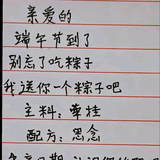 亲爱的
端午节到了
别忘了吃粽子
我送你一个粽子吧
主料：牵挂
配方：思念